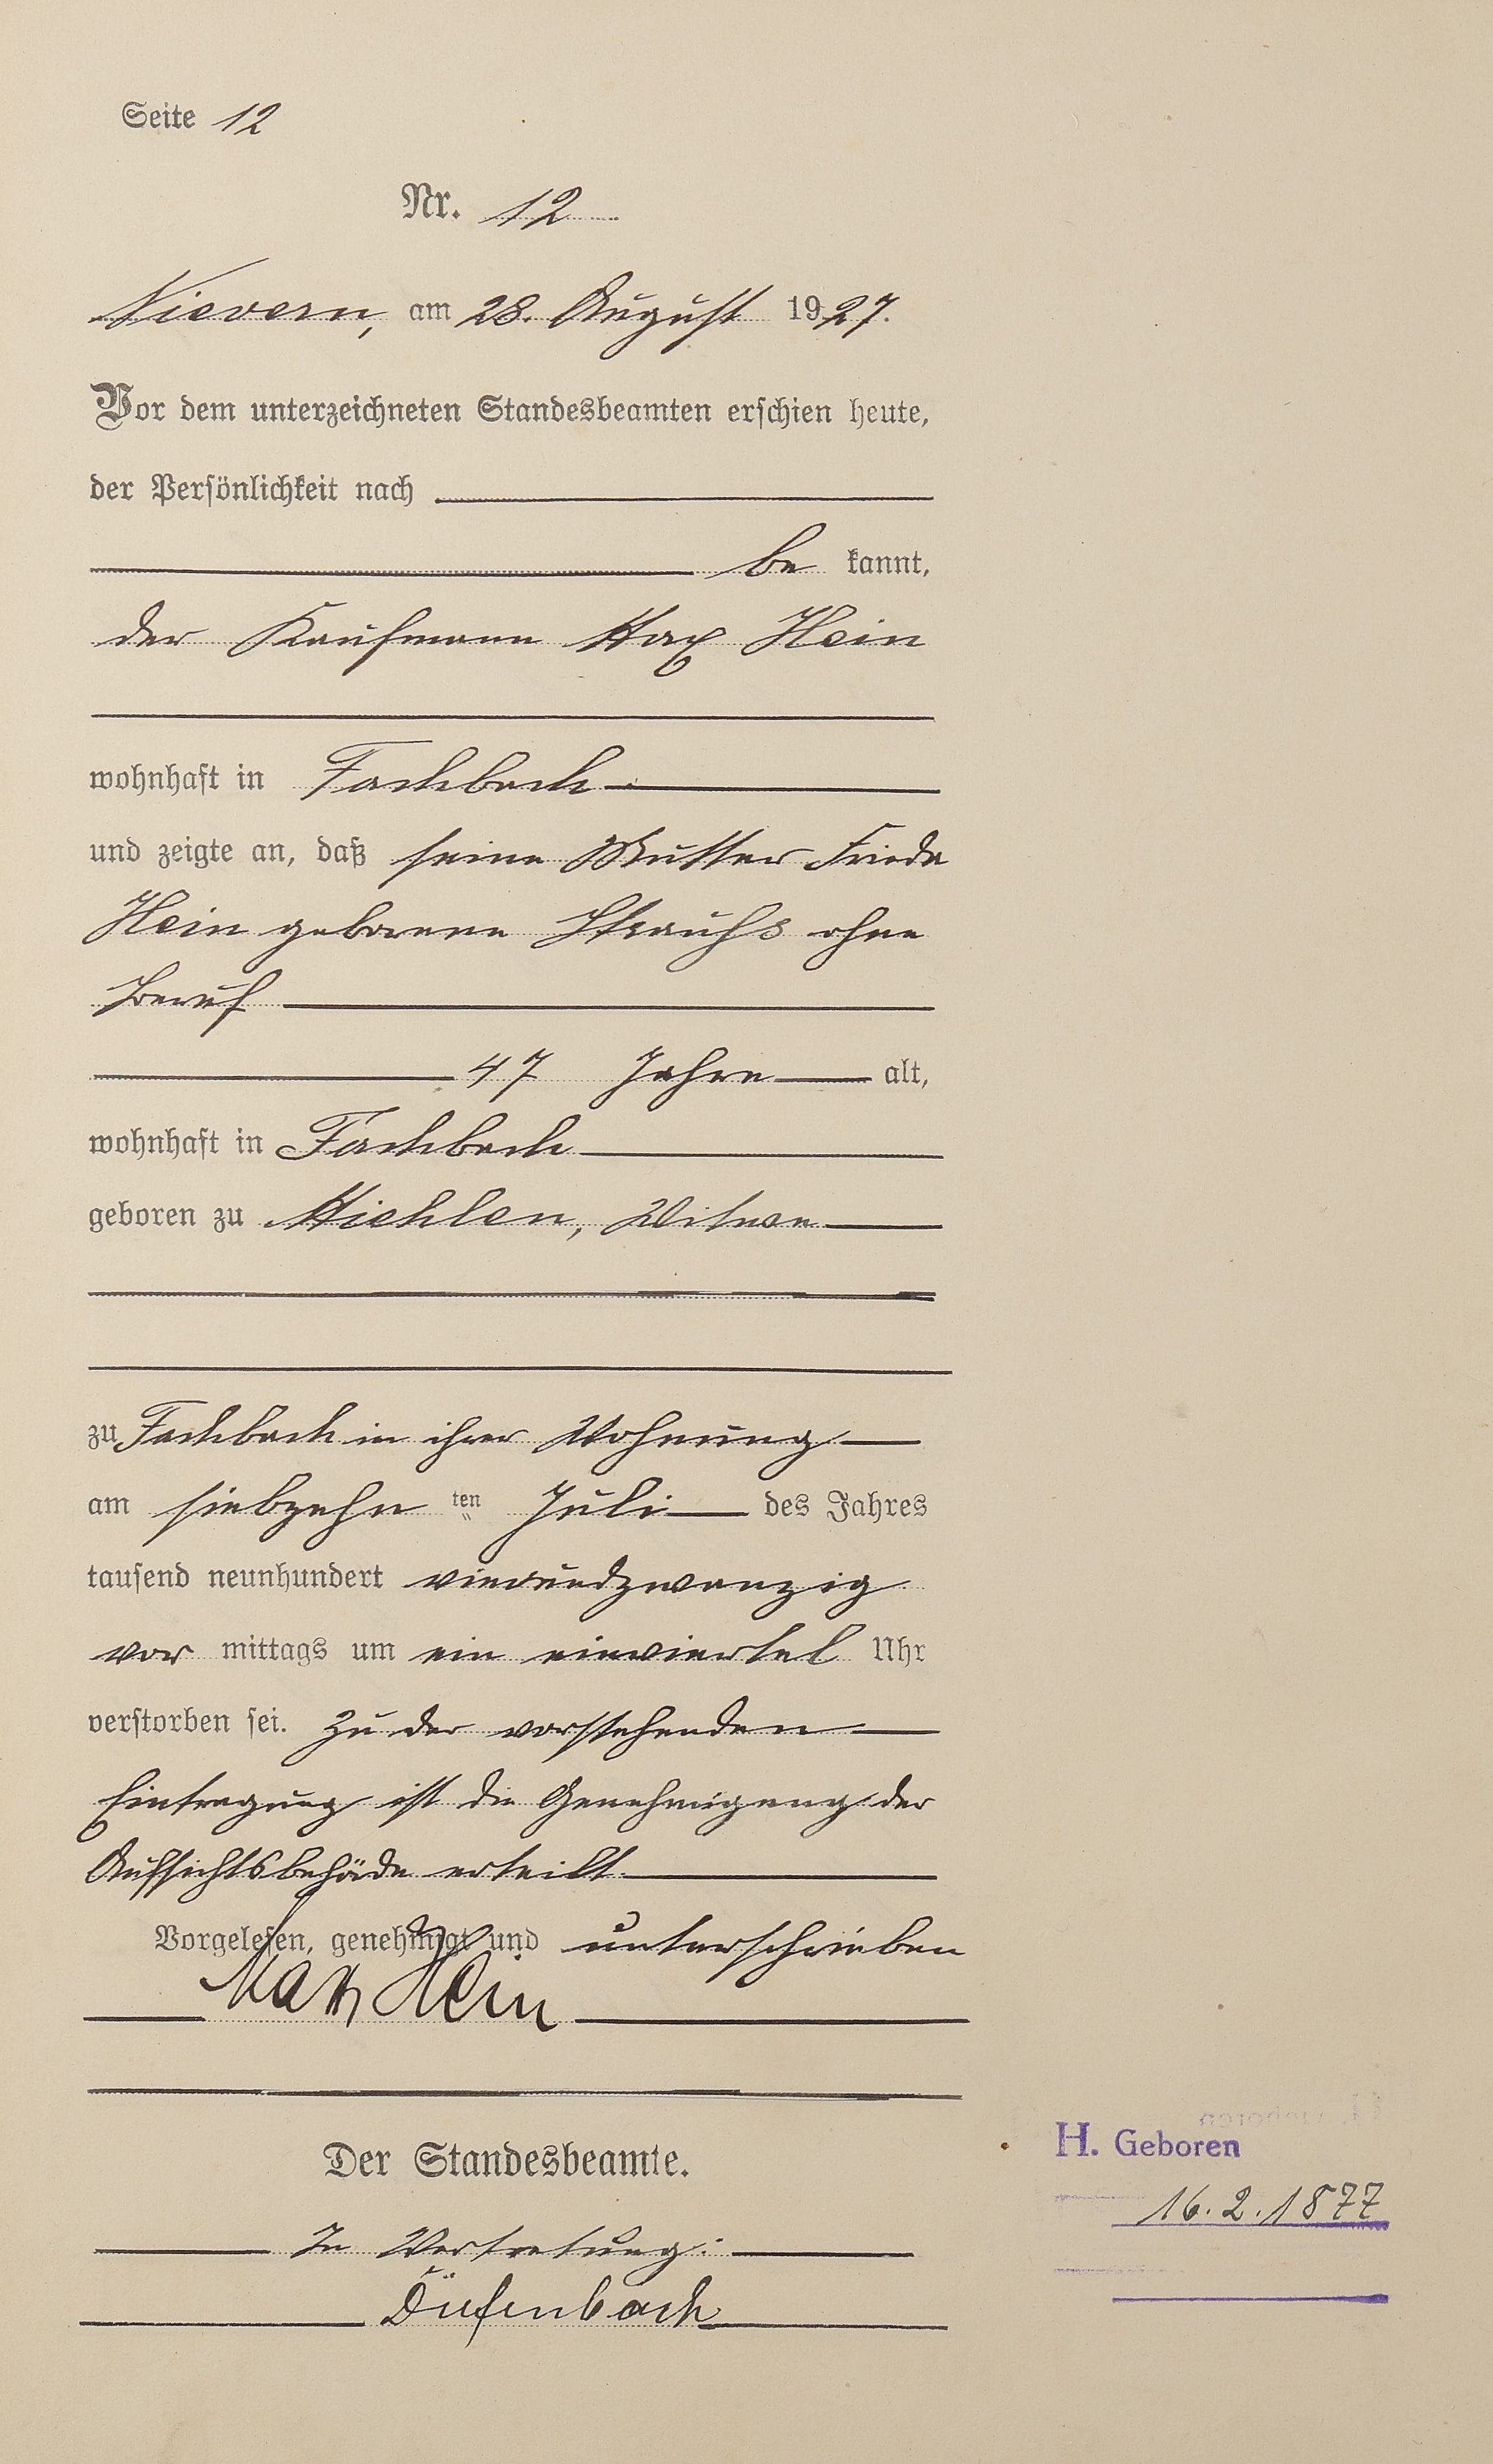 Seite 12
Nr. 12
Nievern, am 28. August 1927.
Vor dem unterzeichneten Standesbeamten erschien heute,
der Persönlichkeit nach
be kannt,
der Kaufmann Max Hein
wohnhaft in Fachbach
und zeigte an, daß seine Mutter Frieda
Hein geborene Strauhs ohne
Beruf
47 Jahre alt,
wohnhaft in Fachbach
geboren zu Miehlen, Witwe
zu Fachbach in ihrer Wohnung
am siebzehn ten Juli des Jahres
tausend neunhundert vierundzwanzig
vor mittags um ein einviertel Uhr
verstorben sei. Zu der vorstehenden
Eintragung ist die Genehmigung der
Aufsichtsbehöde erteilt.
Vorgelesen, genehmigt und unterschrieben
Max Hein
Der Standesbeamte.
In Vertretung:
Diefenbach
H. Geboren
16.2.1877